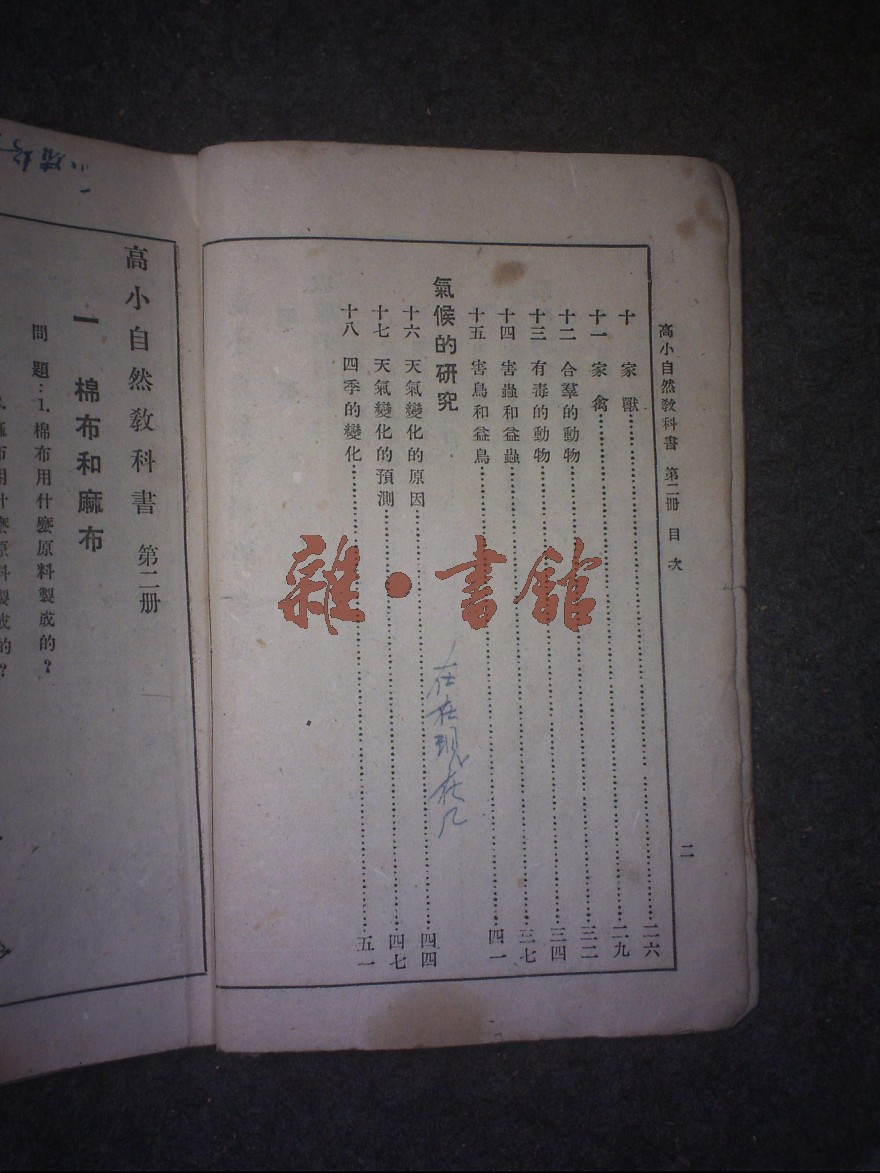 高小自然敎科書 第二册 目次
二
十 家獸……二六
十一 家禽……二九
十二 合羣的動物……三二
十三 有毒的動物……三四
十四 害蟲和益蟲……三七
十五 害鳥和益鳥……四一
氣候的研究
十六 天氣變化的原因……四四
十七 天氣變化的預測……四七
十八 四季的變化……五一
在現在几
雜·書館
高小自然敎科書 第二册
一 棉布和麻布
問題：1. 棉布用什麼原料製成的？
麻布用什麼原料製成的？